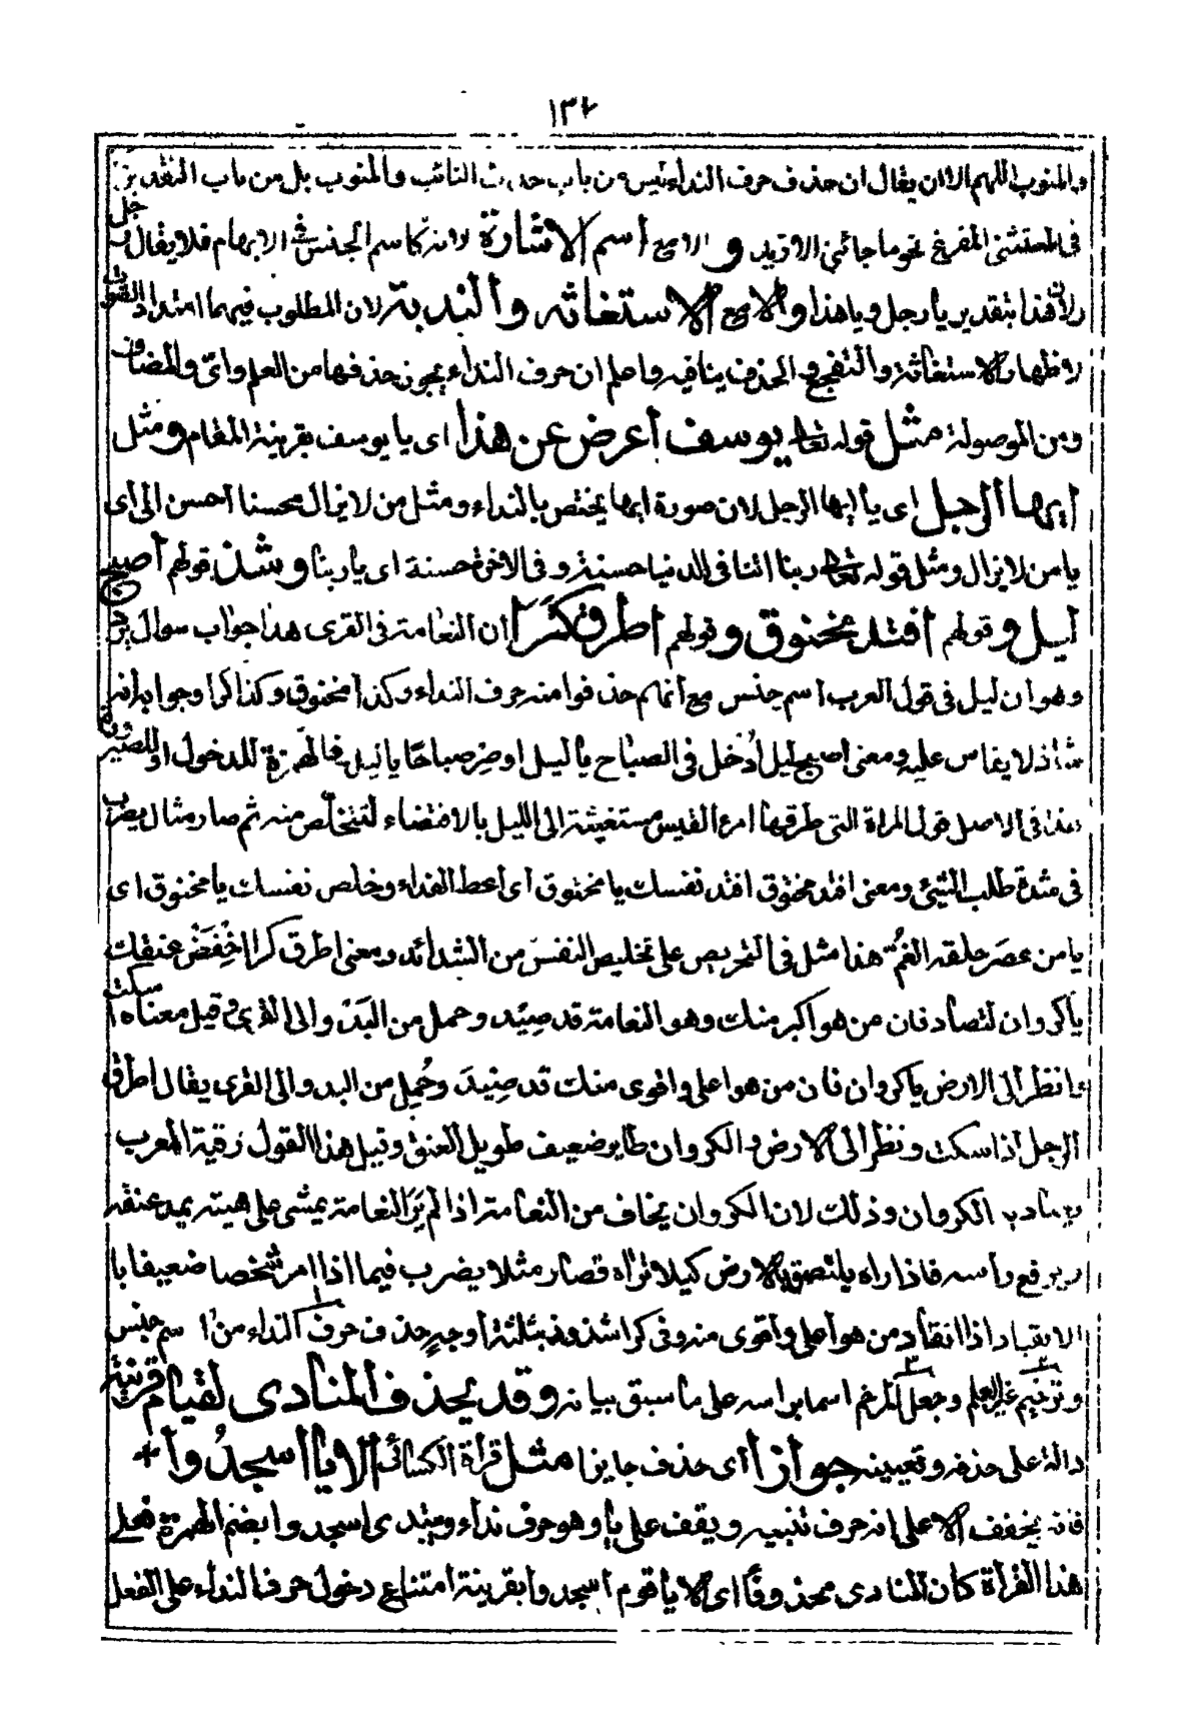 ١٣٦
والمنوب اللهم الا ان يقال ان حذف حرف النداء ليس من باب حذف النائب والمنوب بل من باب التقدير
فى المستثنى المفرغ نحو ما جائنى الا زيد و الا مع اسم الاشارة لانه كاسم الجنس فى الابهام فلا يقال رجل
لان هذا بتقدير يا رجل و يا هذا والا مع الاستغاثه والندبة لان المطلوب فيهما امتداد الصوت
و ظهار الاستغاثة والتفجع و الحذف ينافيه واعلم ان حرف النداء يجوز حذفها من العلم واى والمضاف
ومن الموصولة مثل قوله تعالى يوسف أعرض عن هذا اى يا يوسف بقرينة المقام ومثل
ايها الرجل اى يا ايها الرجل لان صورة ايها يختص بالنداء ومثل من لا يزال محسنا احسن الى اى
يا من لا يزال ومثل قوله تعالى ربنا اتنا فى الدنيا حسنة وفى الاخرة حسنة اى يا ربنا وشذ قولهم أصبح
ليل و قولهم افتد مخنوق و قولهم اطرق كَرَا ان النعامة فى القرى هذا جواب سوال يرد
وهو ان ليل فى قول العرب اسم جنس مع انهم حذفوا منه حرف النداء وكذا مخنوق وكذا كرا وجوابه انه
شاذ لا يقاس عليه ومعنى اصبح ليل اُدخل فى الصباح يا ليل او صِر صباحًا يا ليل فالهمزة للدخول او للصيرورة
هذا فى الاصل قول المراة التى طرقها امرء القيس مستغيثة الى الليل بالاقتضاء لتتخلّص منه ثم صار مثالا يضرب
فى شدة طلب الشئ ومعنى افتد مخنوق افتد نفسك يا مخنوق اى اعط الفداء وخلص نفسك يا مخنوق اى
يا من عصر حلقه الغمّ هذا مثل فى التحريص على تخليص النفس من الشدائد ومعنى اطرق كرا اخفض عنقك
يا كروان لتصاد فان من هو اكبر منك وهو النعامة قد صِيد وحمل من البَدْ والى القرى وقيل معناه اسكت
وانظر الى الارض يا كروان فان من هو اعلى واقوى منك قد صِيدَ وحُمِل من البدو الى القرى يقال اطرق
الرجل اذا سكت ونظر الى الارض والكروان طاير ضعيف طويل العنق وقيل هذا القول رقية العرب
يصاد به الكروان وذلك لان الكروان يخاف من النعامة اذا لم يَرَ النعامة يمشى على هيئته يمد عنقه
ويرفع راسه فاذا راه يلتصق بالارض كيلا تراه فصار مثلا يضرب فيما اذا امر شخصا ضعيفا با
لانقياد اذا انقاد من هو اعلى واقوى منه وفى كرا شذوذ بثلثة أوجهٍ حذف حرف النداء من اسم جنس
وترخيم غير العلم وجعل المرخم اسما براسه على ما سبق بيانه وقد يحذف المنادى لقيام قرينة
دالة على حذفه وتعيينه جوازا اى حذف جايزا مثل قرأة الكسائى ألا يا اسجدُوا +
فانه يخفف الا على انه حرف تنبيه ويقف على يا وهو حرف نداء ويبتدى اسجدوا بضم الهمزة فعلى
هذا القرأة كان المنادى محذوفًا اى الا يا قوم اسجدوا بقرينة امتناع دخول حرف النداء على الفعل